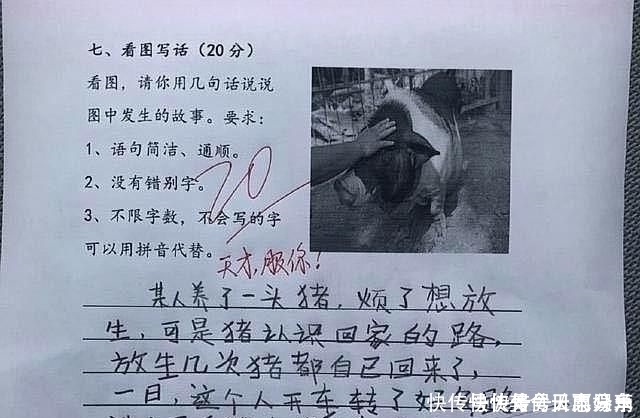 七、看图写话（20分）
看图，请你用几句话说说
图中发生的故事。要求：
1、语句简洁、通顺。
2、没有错别字。
3、不限字数，不会写的字
可以用拼音代替。
20
天才，服你！
某人养了一头猪，烦了想放
生，可是猪认识回家的路，
放生几次猪都自己回来了，
一日，这个人开车转了好
快传号